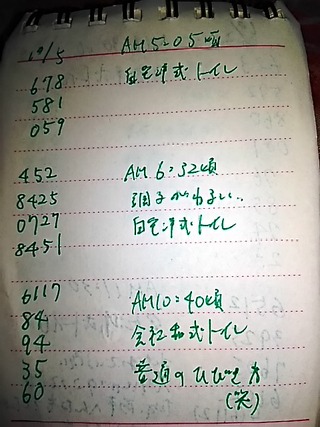 10/5 AM5:05頃
678 自宅洋式トイレ
581
059
452 AM6:32頃
8425 調子がわるい..
0727 自宅洋式トイレ
8451
6117 AM10:40頃
84 会社和式トイレ
94
35 普通のひびき方
60 (笑)